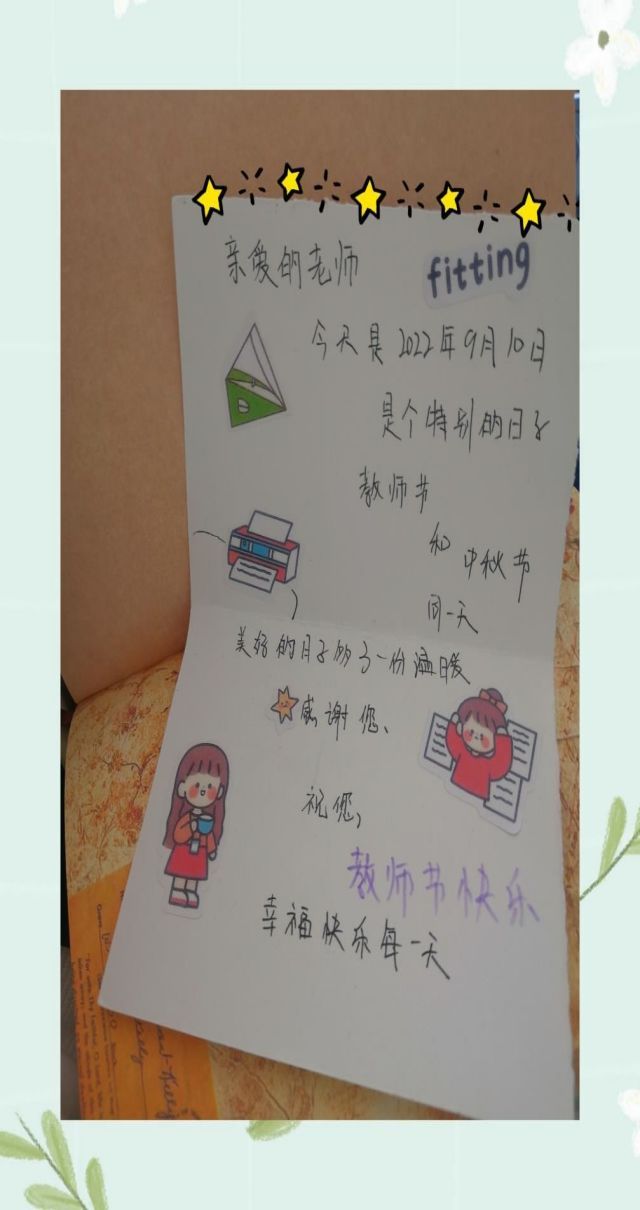 亲爱的老师
fitting
今天是2022年9月10日
是个特别的日子
教师节
和中秋节
同一天
美好的日子多了一份温暖
感谢您、
祝您,
教师节快乐
幸福快乐每一天